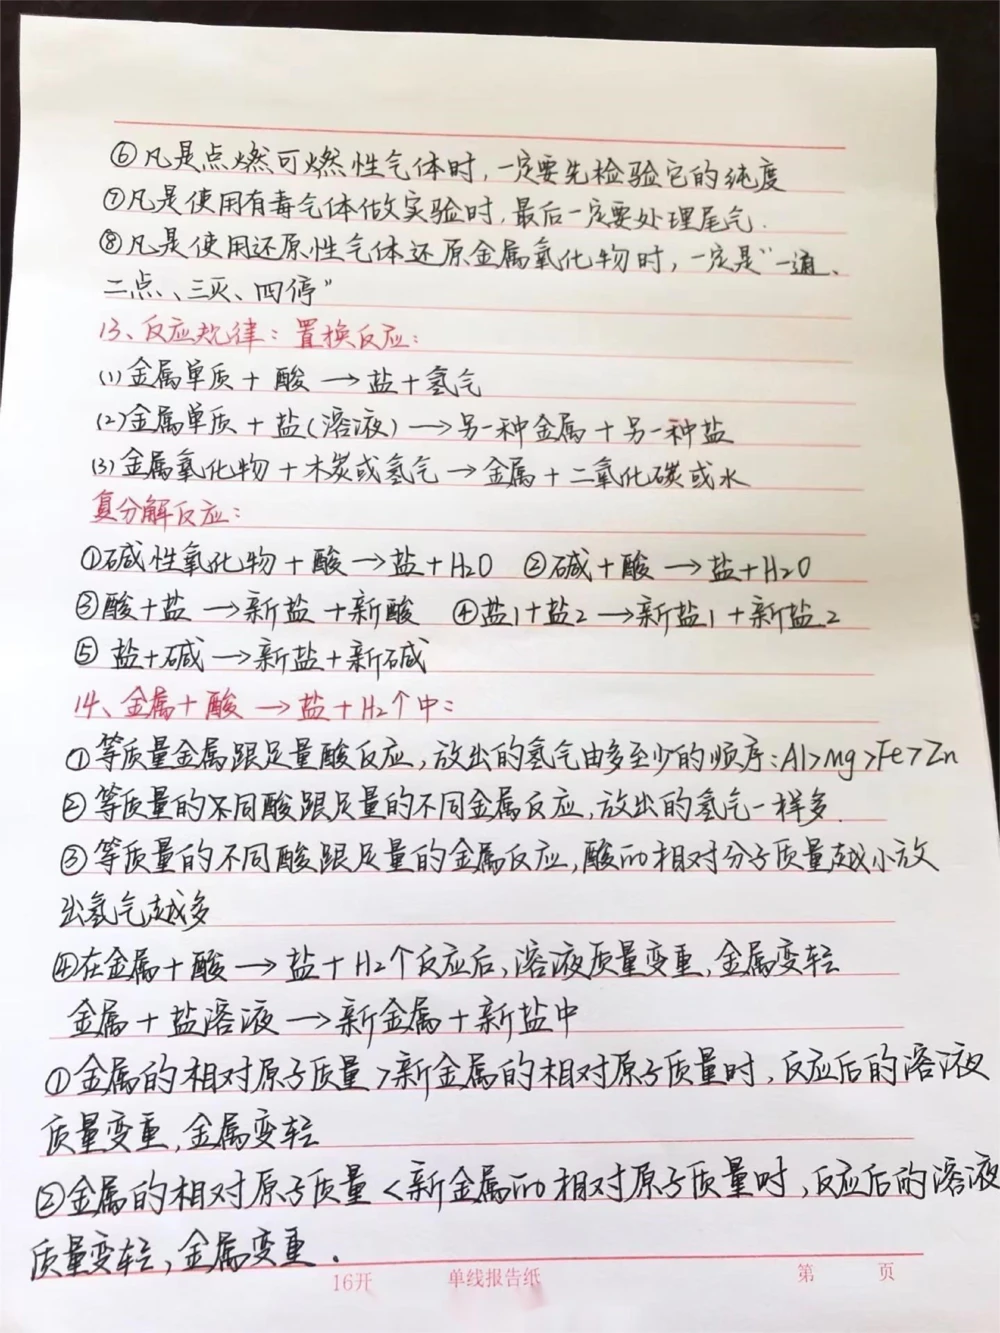 ⑥凡是点燃可燃性气体时,一定要先检验它的纯度
⑦凡是使用有毒气体做实验时,最后一定要处理尾气.
⑧凡是使用还原性气体还原金属氧化物时,一定是“一通、
二点、三灭、四停”
13、反应规律:置换反应:
(1)金属单质+酸→盐+氢气
(2)金属单质+盐(溶液)→另一种金属+另一种盐
(3)金属氧化物+木炭或氢气→金属+二氧化碳或水
复分解反应:
①碱性氧化物+酸→盐+H2O ②碱+酸→盐+H2O
③酸+盐→新盐+新酸 ④盐1+盐2→新盐1+新盐2
⑤盐+碱→新盐+新碱
14、金属+酸→盐+H2个中:
①等质量金属跟足量酸反应,放出的氢气由多至少的顺序:Al>Mg>Fe>Zn
②等质量的不同酸跟足量的不同金属反应,放出的氢气一样多.
③等质量的不同酸跟足量的金属反应,酸的相对分子质量越小放
出氢气越多
④在金属+酸→盐+H2个反应后,溶液质量变重,金属变轻
金属+盐溶液→新金属+新盐中
①金属的相对原子质量>新金属的相对原子质量时,反应后的溶液
质量变重,金属变轻
②金属的相对原子质量<新金属的相对原子质量时,反应后的溶液
质量变轻,金属变重.
16开 单线报告纸 第 页